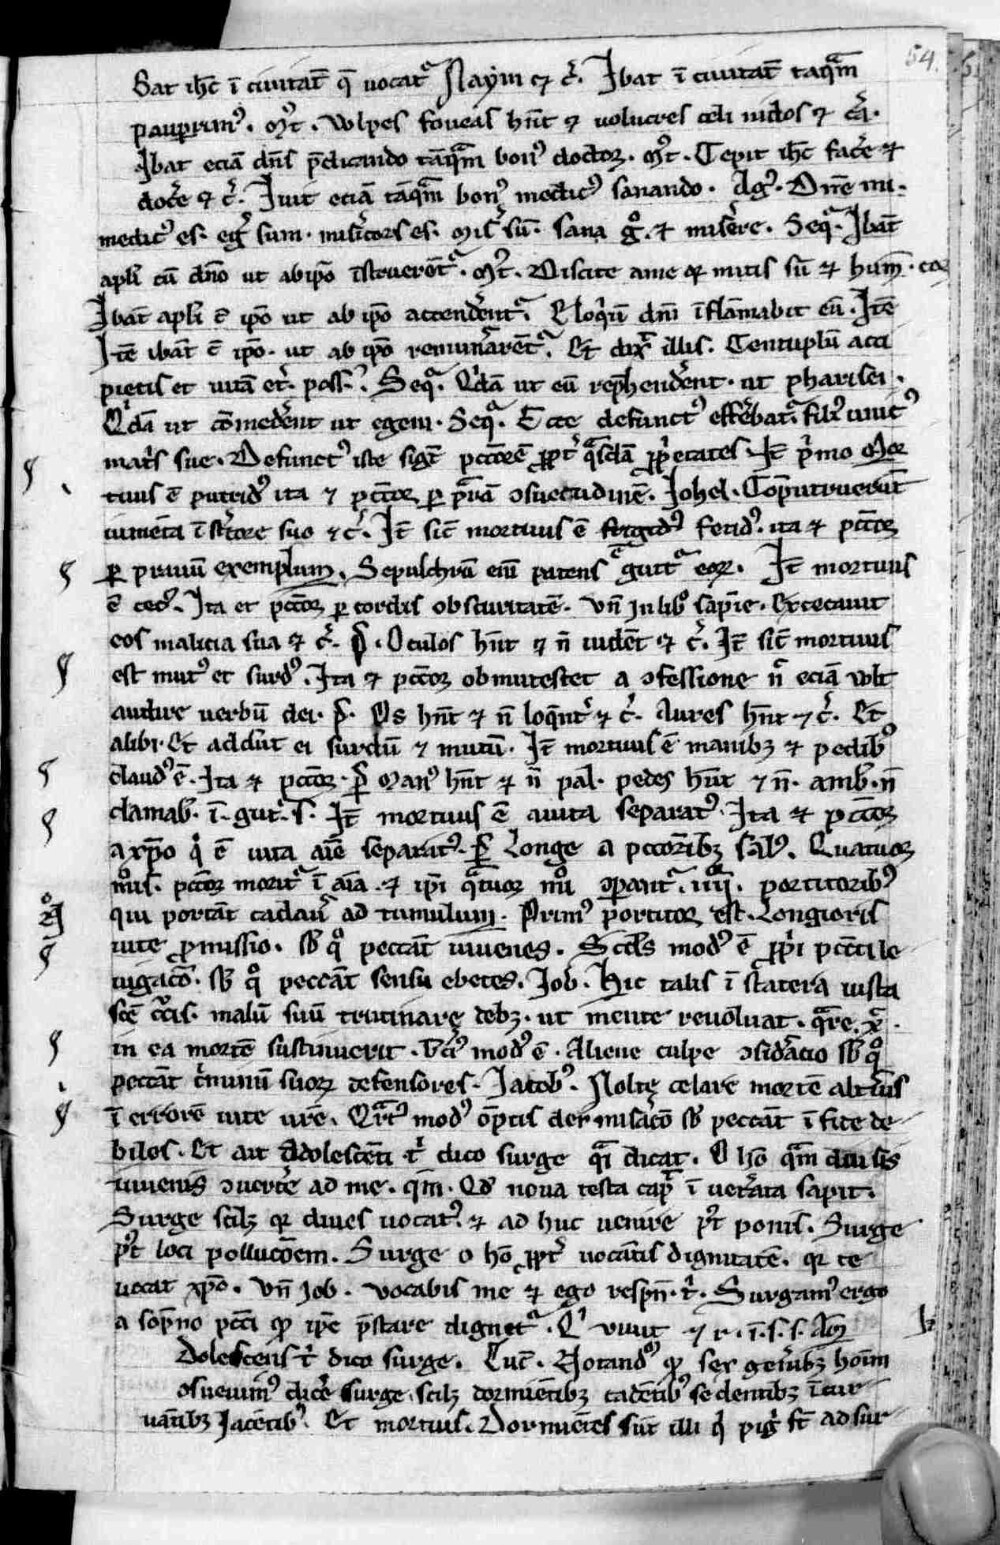 54.
Bat ihc̄ ī ciuitat̄ q̄ uocatᷣ Naym ⁊ c̄. Ibat ī ciuitat̄ taqᷓm
pauꝑrimꝰ. Mt̄. Vulpes foueas hn̄t ⁊ uolucres celi nidos ⁊ c̄.
Ibat eciā dn̄s p̄dicando tāqᷓm bonꝰ doctor. Mt̄. Cepit ihc̄ fac̄e ⁊
doc̄e ⁊ c̄. Iuit eciā tāqᷓm bonꝰ medicꝰ sanando. Agꝰ. Dn̄e mi
medicꝰ es. eḡ sum. misi͛cors es. mis͛ sū. sana gͦ. ⁊ misēre. Seqᷓ. Ibāt
apl̄i cū dn̄o ut ab ip̄o īstruerēt᷑. Mt̄. Discite a me qꝛ mitis sū ⁊ hum̄. cor
Ibāt apl̄i c̄ ip̄o ut ab ip̄o accendēnt᷑. Eloq̇ū dn̄i īflāmabit eū. Itē
Itē ibāt c̄ ip̄o. ut ab ip̄o remun̄arēt᷑. Et dix̄ illis. Centuplū acci
pietis et uitā et͛. poss. Seqᷓ. Q̇dā ut eū rep̄hendērent. ut pharisei.
Q̇dā ut cōmedērent ut egeni. Seqᷓ. Ecce defunctꝰ effērebat᷑ filiꝰ unicꝰ
mat͛s sue. Defunctꝰ iste sigt̄ pcc̄orē ꝓpt͛ qᷓsdā ꝓṗetates. It̄ ṗmo mor
tuus ē putridꝰ ita ⁊ pcc̄or ꝑ p̄uā ꝯsuetudinē. Johel. Cōputruerūt
iumēta ī st͛core suo ⁊ c̄. It̄ sic̄ mortuus ē frigidꝰ fetidꝰ. ita ⁊ pcc̄or
ꝑ prauū exemplum. Sepulchrū eniȝ patens ē gutt᷑ eoꝝ. It̄ mortuus
ē cecꝰ. Ita et pcc̄or ꝑ cordis obscuritatē. Vn̄ in libͦ sapīe. Excecauit
eos malicia sua ⁊ c̄. P̄. Oculos hn̄t ⁊ n̄ uidēt ⁊ c̄. It̄ sic̄ mortuus
est mutꝰ et surdꝰ. Ita ⁊ pcc̄or obmutescet a ꝯfessione n̄ eciā uult
audire uerbū dei. P̄. Os hn̄t ⁊ n̄ loqn̄t᷑ ⁊ c̄. Aures hn̄t ⁊ c̄. Et
alibi. Et addūt ei surdū ⁊ mutū. It̄ mortuus ē manibȝ ⁊ pedibꝰ
claudꝰ ē. Ita ⁊ pcc̄or. P̄ Manꝰ hn̄t ⁊ n̄ pal. pedes hn̄t ⁊ n̄. amb. n̄
clamab. ī. gut. s. It̄ mortuus ē a uita separatꝰ. Ita ⁊ pcc̄or
a xp̄o q̇ ē uita aīe separatꝰ. P̄ Longe a pcc̄oribȝ salꝰ. Quatuor
mͦis. pcc̄or morit᷑ ī aīa. ⁊ ip̄i qᷓtuor mͦi ꝯparant᷑. iiii. portitoribꝰ
qui portāt cadau͛ ad tumulum. Primꝰ portitor est. Longioris
uite ꝓmissio. sb̄ qͦ peccāt iuuenes. Scd̄s modꝰ ē ꝓṗi pcc̄i le
uigac̄o. sb̄ qͦ peccāt sensu ebetes. Job. Hic talis ī statera iusta
sc̄e c̄cis. malū suū trutinare debȝ. ut mente reuoluat. qᷓre. xͣ.
in ea mortē sustinuerit. Terꝰ modꝰ ē. Aliene culpe ꝯsid͛acio sb̄ qͦ
peccāt c͛minū suoꝝ defensores. Jacobꝰ. Nolite celare mortē
ī errorē uite ur̄e. Qᷓrtꝰ modꝰ dei misiac̄o sb̄ peccāt ī fide de
biles. Et ait Adolescēti t͛ dico surge qᷓi dicat. O hō qᷓm diu sis
iuuenis ꝯuert͛e ad me. qm̄. Qd̄ noua testa capit ī ueterata sapit.
Surge scilȝ qꝛ diues uocatꝰ. ⁊ ad huc uenire pͦt ponis. Surge
pͦt loci pollucōem. Surge o hō ꝓpt͛ uocātis dignitatē. qꝛ te
uocat xp̄o. Vn̄ Job. Vocabis me ⁊ ego respn̄. t͛. Surgamꝰ ergo
a sopno pcc̄i qꝫ ip̄e p̄stare dignet᷑. Qͥ uiuit ⁊ r. ī. s. s. Am̄
Dolescens t͛ dico surge. Luc̄. Notandꝰ qꝫ sex gen͛ibȝ hoīm
ꝯsueuimꝰ dic͛e surge. scilȝ dormiētibȝ cadētibꝰ sedentibȝ īcur
uātibȝ iacētibꝰ. Et mortuis. Dormiētes sūt illi q̇ pig͛ st̄ ad sur